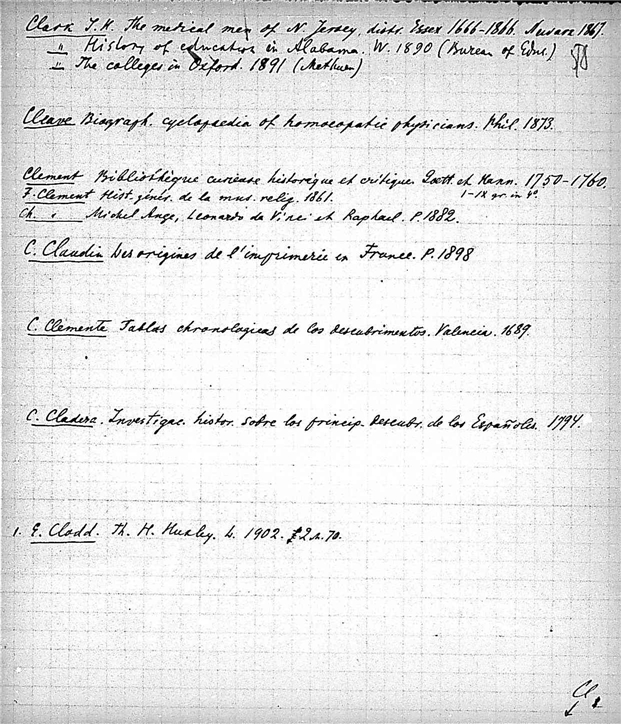 Clark J. H. The medical men of N. Jersey, distr. Essex 1666-1866. Newark 1867.
" History of education in Alabama. W. 1890 (Bureau of Educ.)
" The colleges in Oxford. 1891 (Methuen)
Cleave Biograph. cyclopaedia of homoeopathic physicians. Phil. 1873.
Clement Bibliothèque curieuse historique et critique Goett. et Hann. 1750-1760.
I-IX gr. in 4º
F. Clement Hist. génér. de la mus. relig. 1861.
Ch. " Michel Ange, Leonardo da Vinci et Raphael. P. 1882.
C. Claudin Les origines de l'imprimerie en France. P. 1898
C. Clemente Tablas chronologicas de los descubrimentos. Valencia. 1689.
C. Cladera. Investigac. histor. sobre los princip. descubr. de los Españoles. 1794.
1. E. Clodd. Th. H. Huxley. L. 1902.
Cl